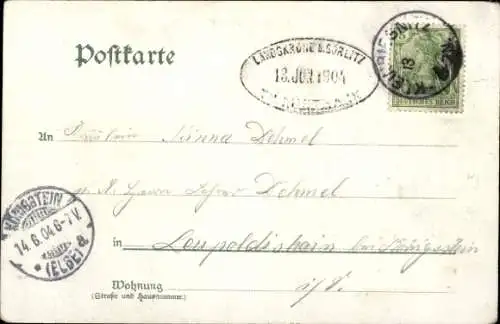 Postkarte
LANDSKRONE B. GÖRLITZ
13. JUN. 1904
KLEIN BIESNITZ
13
DEUTSCHES REICH
An Fräulein Minna Dehmel
Herrn Lehrer Dehmel
KÖNIGSTEIN
14.6.04 6-7 V.
(ELBE) a
in Leupoldishain bei Königstein
Wohnung i/S.
(Straße und Hausnummer)